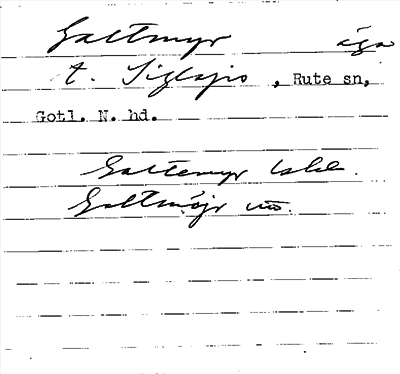 Galtmyr äga
t. Siglajvs, Rute sn,
Gotl. N. hd.
Galtemyr
Galtmöjr